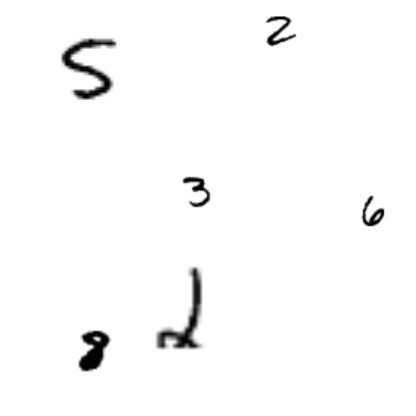 5 2
3 6
8 2